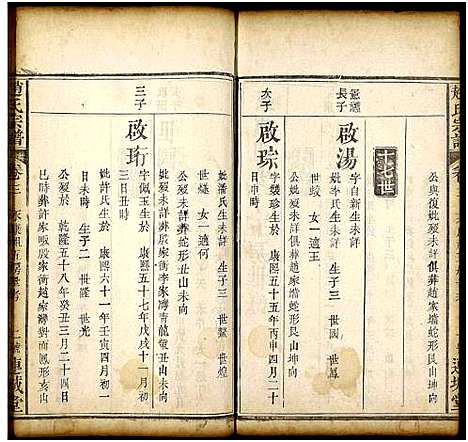 趙氏宗譜
公與復妣歿未詳俱葬趙家壋蛇形艮山坤向
十七世
長子
啟湯
字自新生未詳
妣李氏生未詳 生子三 世國 世鳳
世蛟 女一適王
公妣歿未詳葬趙家壋蛇形艮山坤向
次子
啟琮
字獒珍生於 康熙五十五年丙申四月二十
日申時
妣潘氏生未詳 生子三 世賢 世煋
女一適何
公妣歿未詳葬蛇形丑山未向
三子
啟珩
字佩玉生於 康熙五十七年戊戌十一月初
三日丑時
妣許氏生於 康熙六十一年壬寅四月初
日未時 生子二 世隆 世光
公歿於 乾隆五十八年癸丑三月二十四日
巳時葬許家
趙家灣對面鳳形亥山
趙氏宗譜
卷三
連城堂